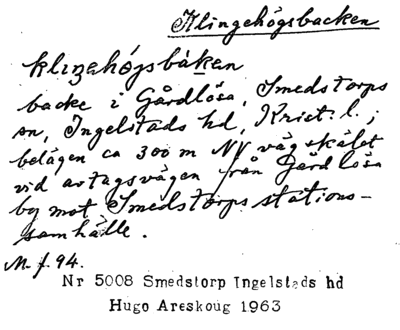 Klingehögsbacken
klɪŋehǿgsbàken
backe i Gårdlösa, Smedstorps
sn, Ingelstads hd, Krist. l.;
belägen ca 300 m NV vägskälet
vid avtagsvägen från Gårdlösa
by mot Smedstorps stations-
samhälle.
M. f. 94.
Nr 5008 Smedstorp Ingelstads hd
Hugo Areskoug 1963